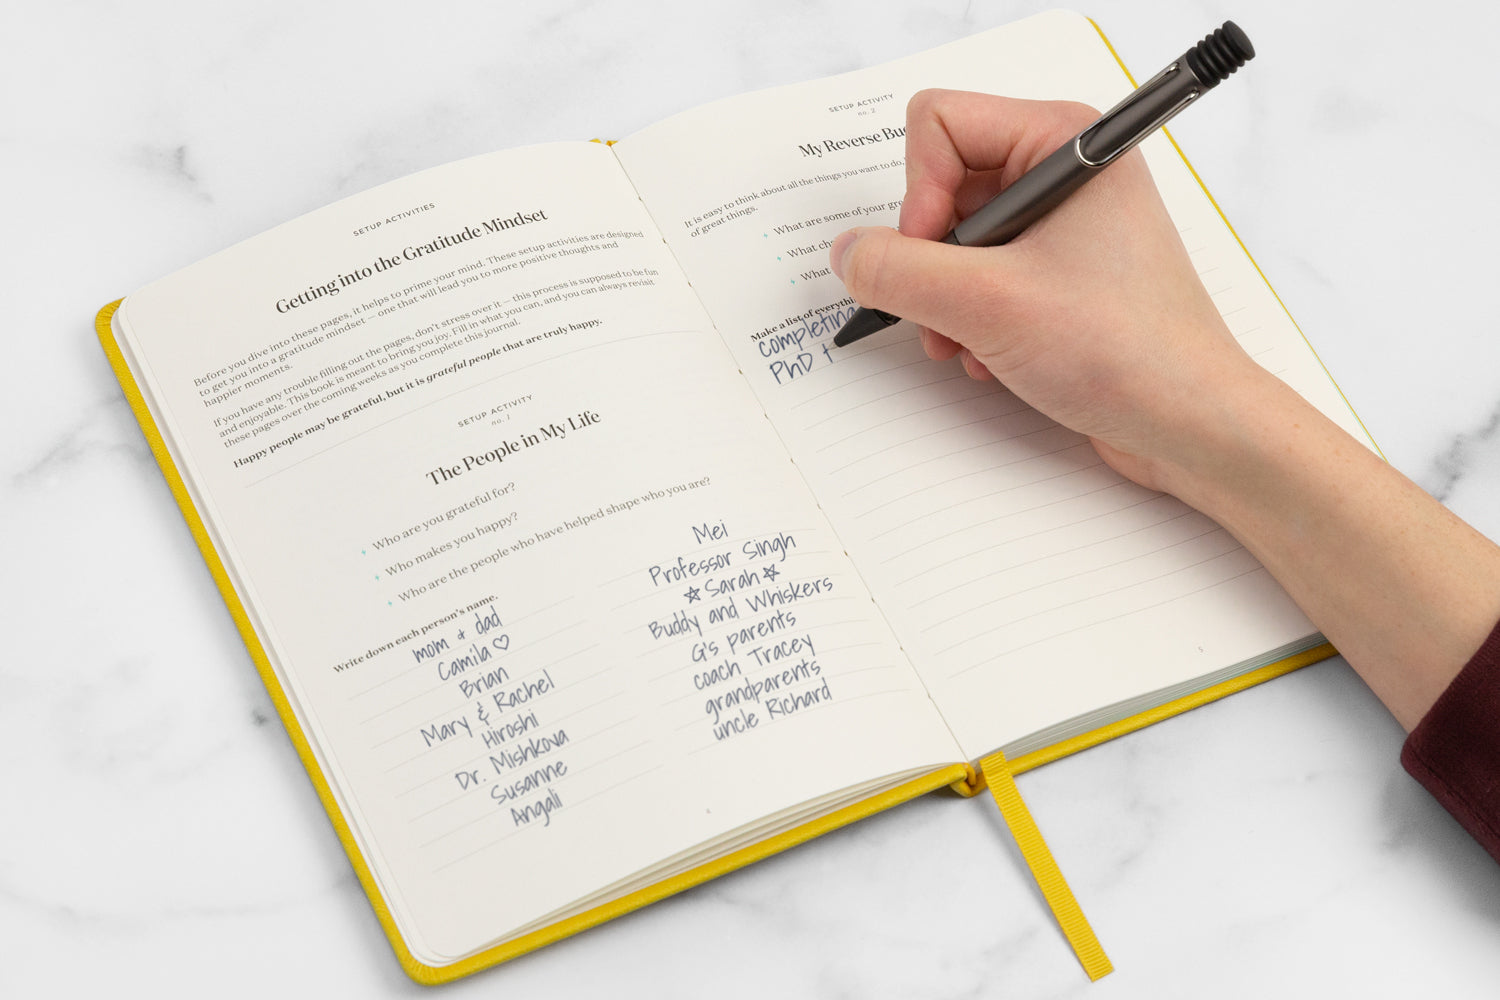 SETUP ACTIVITIES
Getting into the Gratitude Mindset
Before you dive into these pages, it helps to prime your mind. These setup activities are designed
to get you into a gratitude mindset — one that will lead you to more positive thoughts and
happier moments.
If you have any trouble filling out the pages, don't stress over it — this process is supposed to be fun
and enjoyable. This book is meant to bring you joy. Fill in what you can, and you can always revisit
these pages over the coming weeks as you complete this journal.
Happy people may be grateful, but it is grateful people that are truly happy.
SETUP ACTIVITY
no. 1
The People in My Life
Who are you grateful for?
Who makes you happy?
Who are the people who have helped shape who you are?
Write down each person's name.
mom & dad
Camila ♡
Brian
Mary & Rachel
Hiroshi
Dr. Mishkova
Susanne
Angali
Mei
Professor Singh
☆ Sarah ☆
Buddy and Whiskers
G's parents
coach Tracey
grandparents
uncle Richard
SETUP ACTIVITY
no. 2
My Reverse
It is easy to think about all the things you want to do,
of great things.
What are some of your
What
What
Make a list of
completing
PhD
5